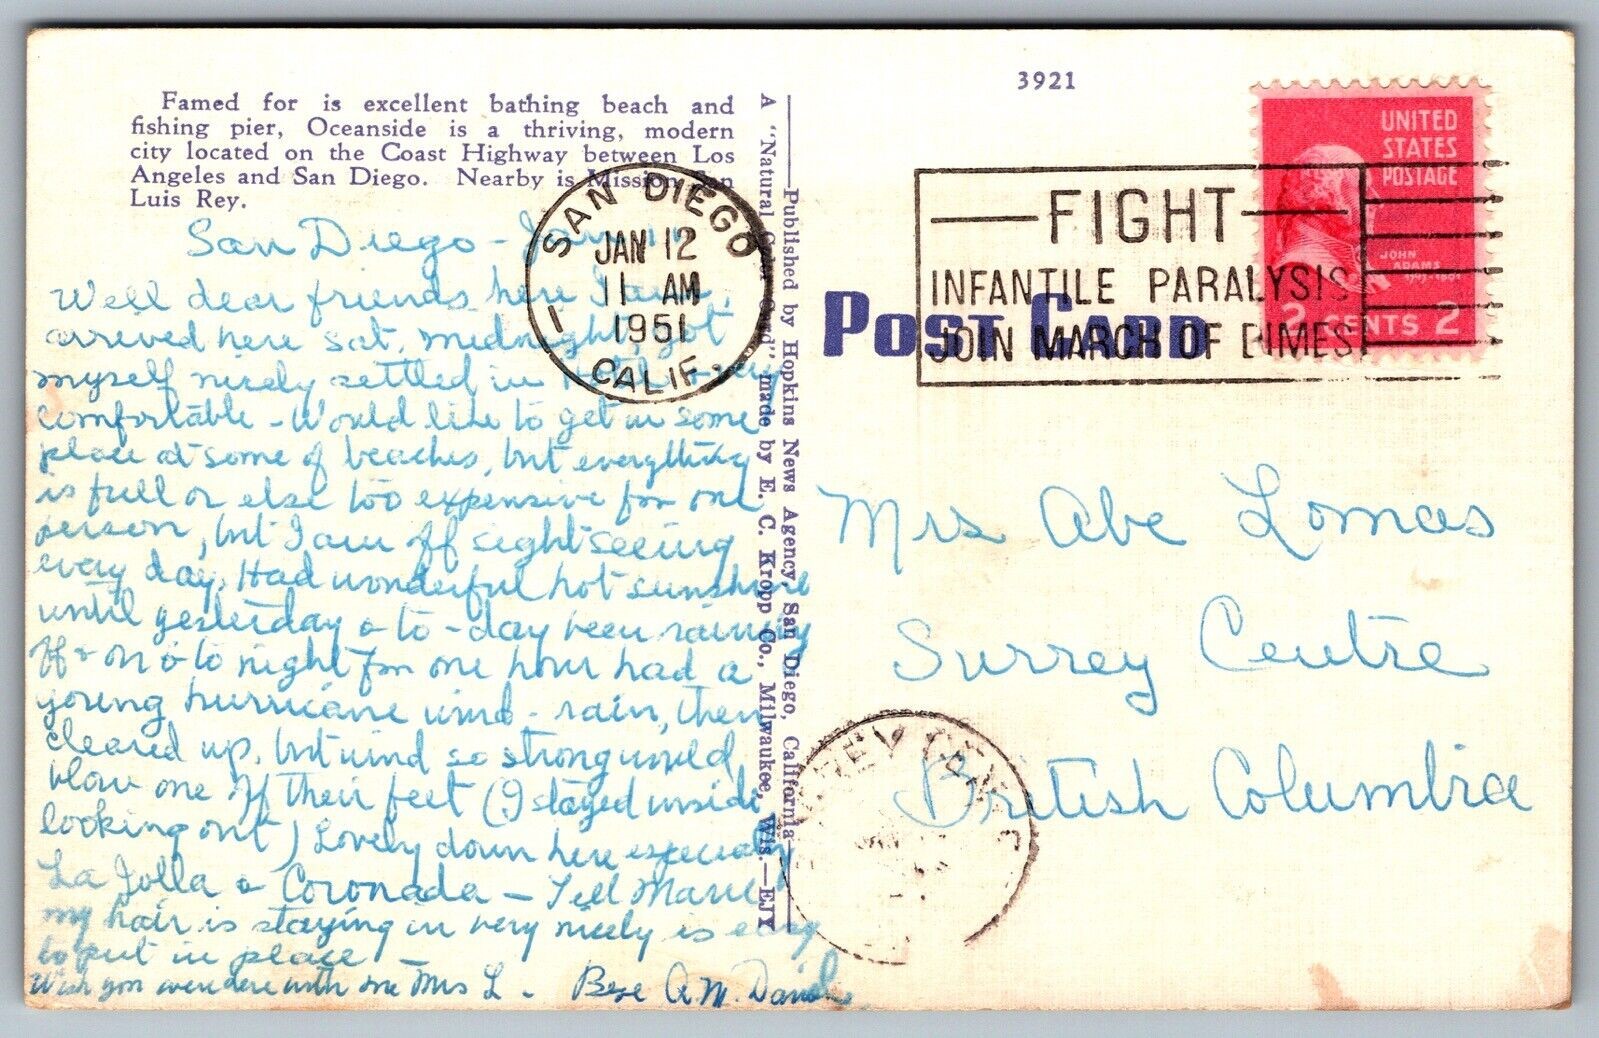 3921
Famed for is excellent bathing beach and
fishing pier, Oceanside is a thriving, modern
city located on the Coast Highway between Los
Angeles and San Diego. Nearby is Mission San
Luis Rey.
San Diego - Jan
Well dear friends here I am,
arrived here Sat. midnight, got
myself nicely settled in Hotel very
comfortable - Would like to get in some
place at some of beaches, but everything
is full or else too expensive for one
person, but I am off sightseeing
every day. Had wonderful hot sunshine
until yesterday & to-day been raining
off & on & to night for one hour had a
young hurricane wind - rain, then
cleared up, but wind so strong would
blow one off their feet (I stayed inside
looking out) Lovely down here especially
La Jolla & Coronada - Tell Marie
my hair is staying in very nicely is easy
to put in place -
Wish you were here with me Mrs L. A.M.
A "Natural Color Card" made by E. C. Kropp Co., Milwaukee, Wis.—EJY
Published by Hopkins News Agency, San Diego, California
SAN DIEGO
JAN 12
11 AM
1951
1
CALIF.
FIGHT
INFANTILE PARALYSIS
JOIN MARCH OF DIMES
POST CARD
UNITED
STATES
POSTAGE
JOHN
ADAMS
2 CENTS 2
Mrs Abe Lomas
Surrey Centre
British Columbia